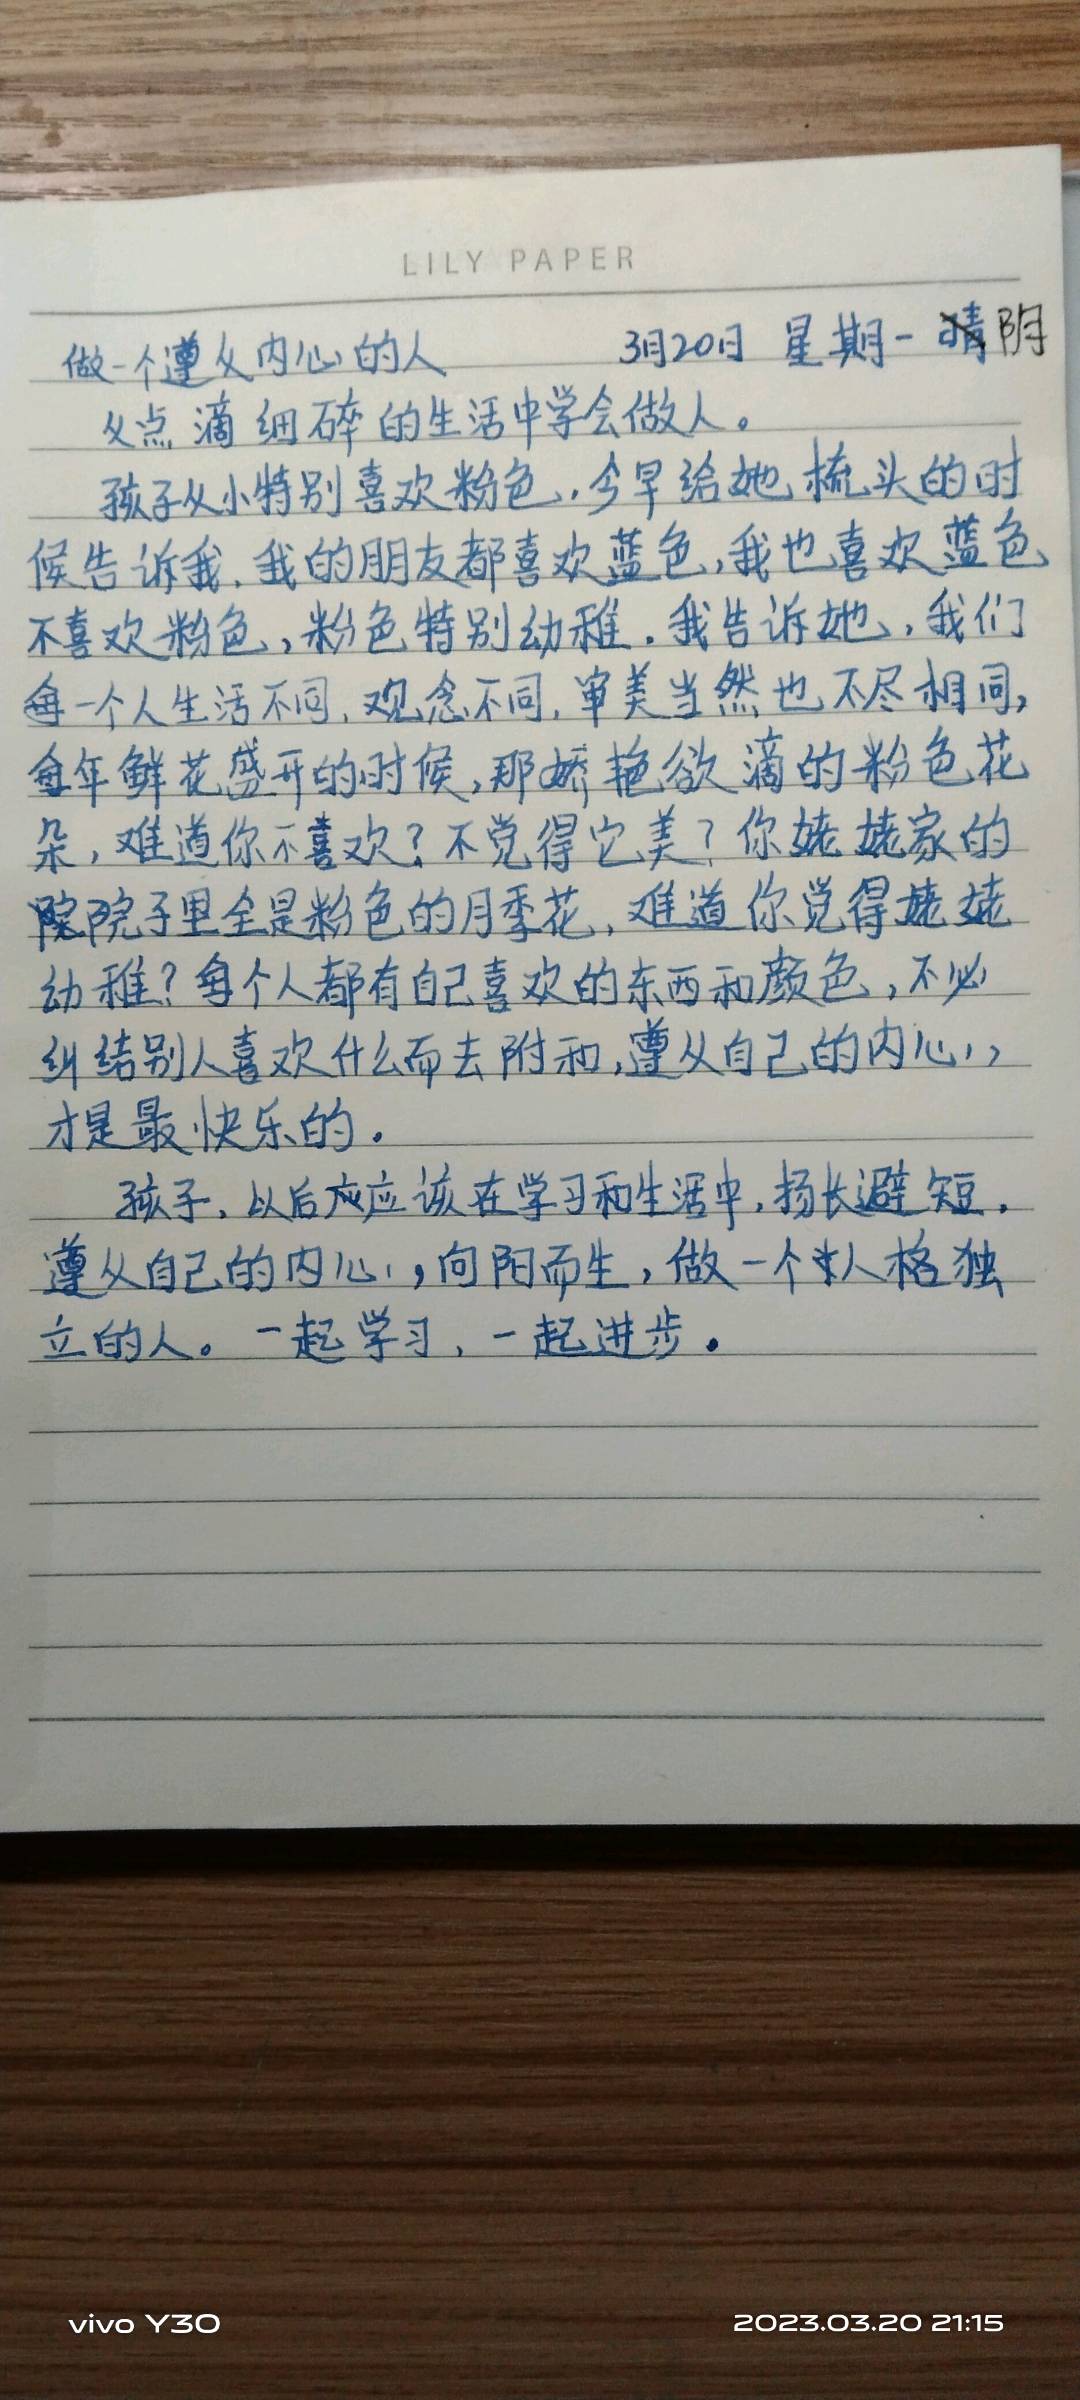 LILY PAPER
做一个遵从内心的人 3月20日 星期一 晴 阴
从点滴细碎的生活中学会做人。
孩子从小特别喜欢粉色,今早给她梳头的时
候告诉我,我的朋友都喜欢蓝色,我也喜欢蓝色
不喜欢粉色,粉色特别幼稚.我告诉她,我们
每一个人生活不同,观念不同,审美当然也不尽相同,
每年鲜花盛开的时候,那娇艳欲滴的粉色花
朵,难道你不喜欢?不觉得它美?你姥姥家的
院院子里全是粉色的月季花,难道你觉得姥姥
幼稚?每个人都有自己喜欢的东西和颜色,不必
纠结别人喜欢什么而去附和,遵从自己的内心,
才是最快乐的.
孩子,以后应应该在学习和生活中,扬长避短,
遵从自己的内心,向阳而生,做一个人格独
立的人。一起学习,一起进步.
vivo Y30
2023.03.20 21:15